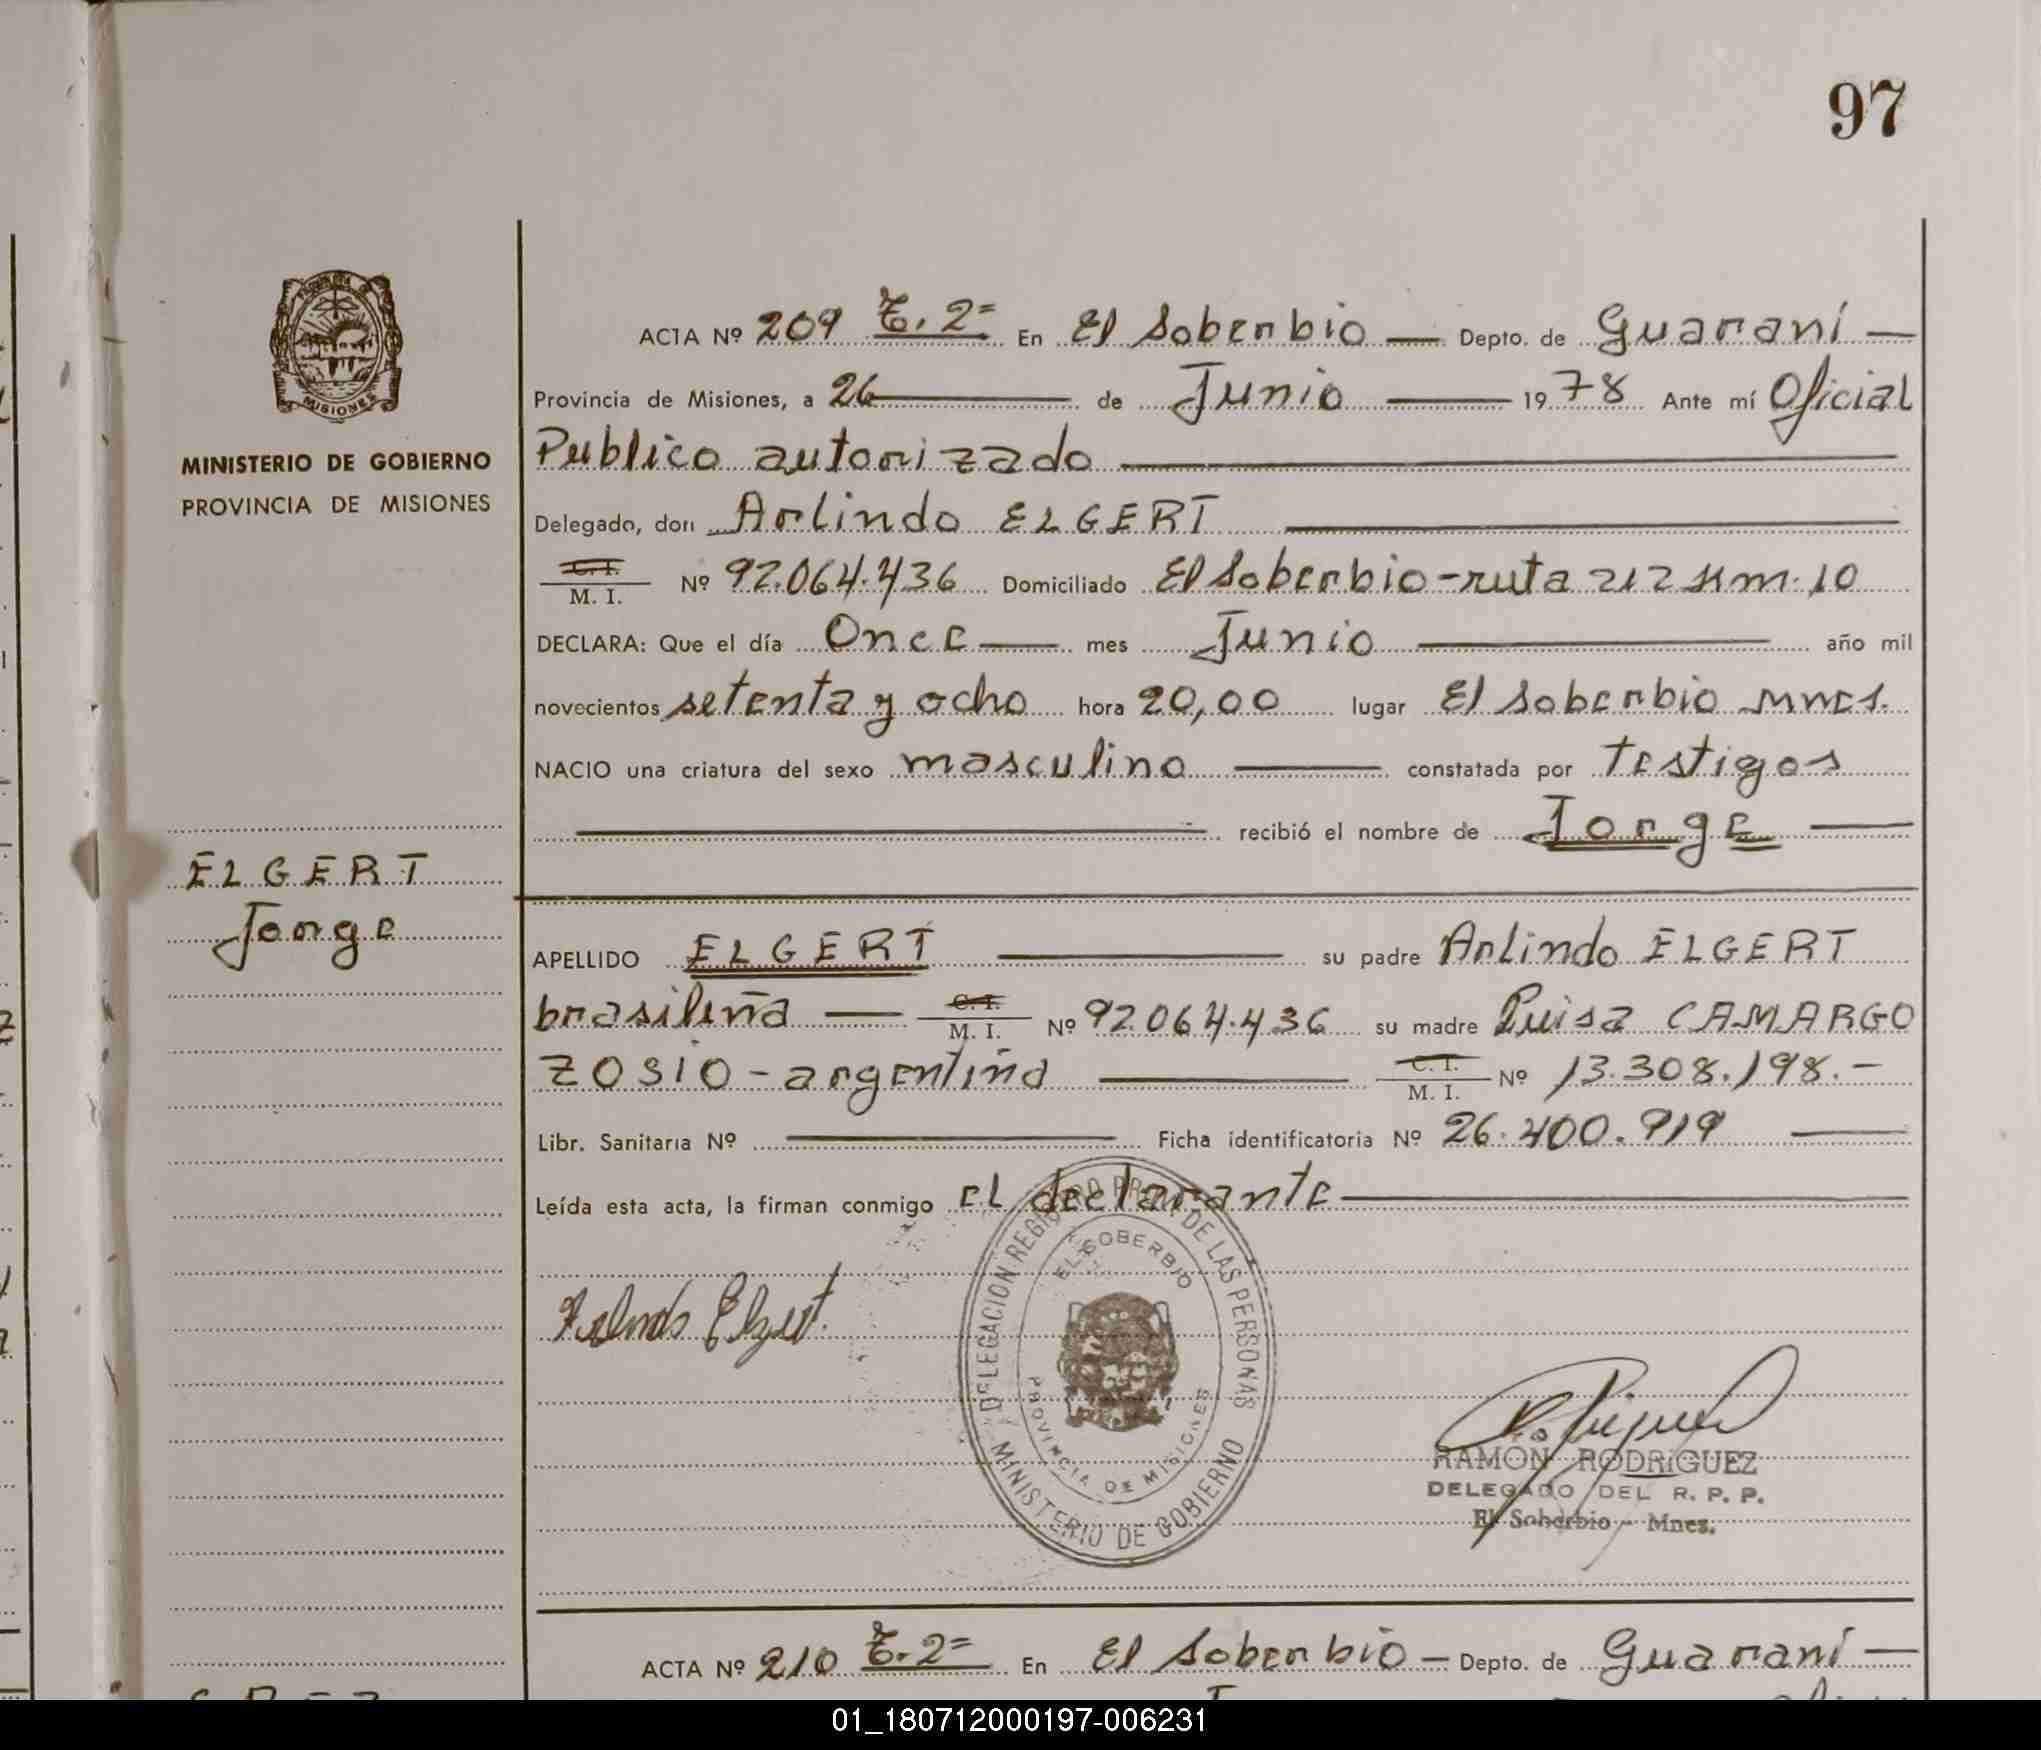 97
MISIONES
MINISTERIO DE GOBIERNO
PROVINCIA DE MISIONES
ELGERT
Jorge
ACTA Nº 209 T. 2= En El Soberbio — Depto. de Guaraní —
Provincia de Misiones, a 26 — de Junio — 1978 Ante mí Oficial
Publico autorizado —
Delegado, don Arlindo ELGERT —
C. I.
M. I. Nº 92.064.436 Domiciliado El Soberbio-ruta 212 Km. 10
DECLARA: Que el día Once — mes Junio — año mil
novecientos setenta y ocho hora 20,00 lugar El Soberbio Mnes.
NACIO una criatura del sexo masculino — constatada por testigos
— recibió el nombre de Jorge —
APELLIDO ELGERT — su padre Arlindo ELGERT
brasileña — C. I. M. I. Nº 92.064.436 su madre Luisa CAMARGO
ZOSIO - argentina — C. I. M. I. Nº 13.308.198.-
Libr. Sanitaria Nº — Ficha identificatoria Nº 26.400.919 —
Leída esta acta, la firman conmigo el declarante —
Arlindo Elgert.
DELEGACION REGISTRO PROV. DE LAS PERSONAS
EL SOBERBIO
PROVINCIA DE MISIONES
MINISTERIO DE GOBIERNO
RAMON RODRIGUEZ
DELEGADO DEL R. P. P.
El Soberbio - Mnes.
ACTA Nº 210 T. 2= En El Soberbio — Depto. de Guaraní —
01_180712000197-006231